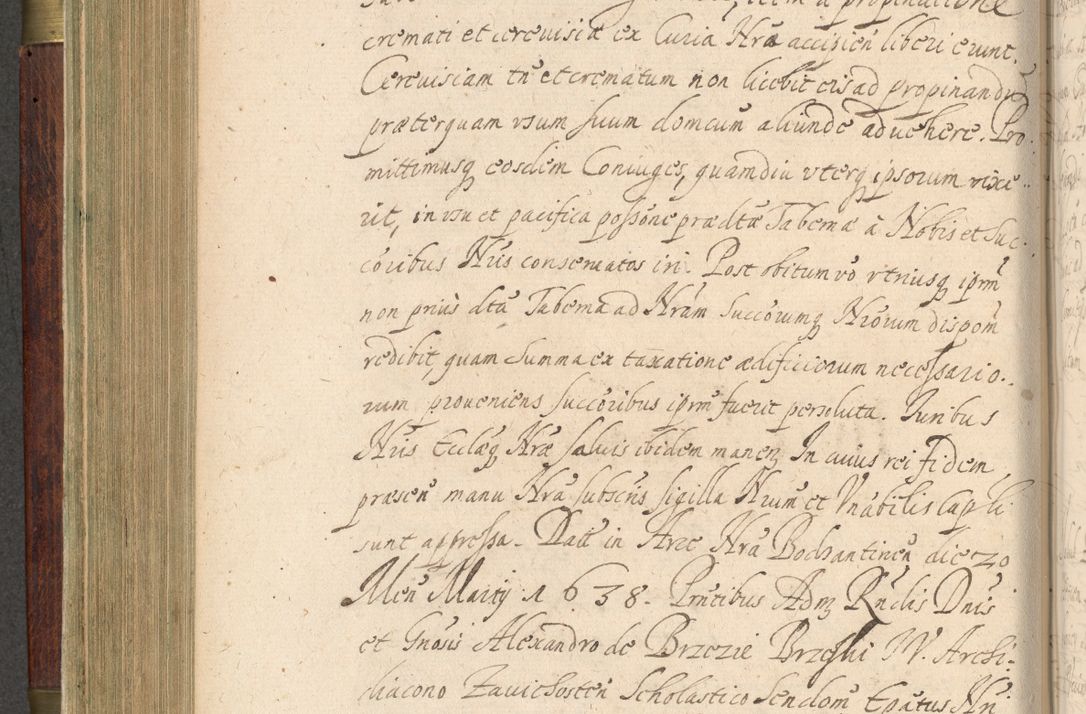 cremati et cereuisiæ ex Curia Nrã accisien̄ liberi erunt.
Cereuisiam tñ et crematum non licebit eis ad propinandũ
præterquam vsum suum domcum̃ aliunde aduehere. Pro
mittimusq eosdem Coniuges, quamdiu vterq ipsorum vixe
rit, in vsu et pacifica possõne prædtæ Tabernæ à Nobis et Suc
coribus Nris conseruatos iri. Post obitum võ vtriusq ipm̃
non prius dta Taberna ad Nram Succorumq Nrorum dispom̃
redibit, quam summa ex taxatione ædificiorum necessario
rum proueniens succoribus ipm̃ fuerit persoluta. Iuribus
Nris Ecclæq Nræ saluis ibidem maneñ. In cuius rei fidem
præsen̄ manu Nra subscris sigilla Nrum et Vnabilis Capli
sunt appressa. Datt in Arce Nra Bodzantineñ die 20
Men̄ Martij 1638. Prntibus Adm Rndis Dnis
et Gnosis Alexandro de Brzezie Brzeski I.V. Archi
diacono Zauichosteñ Scholastico Sendom̃ Epatus Nri